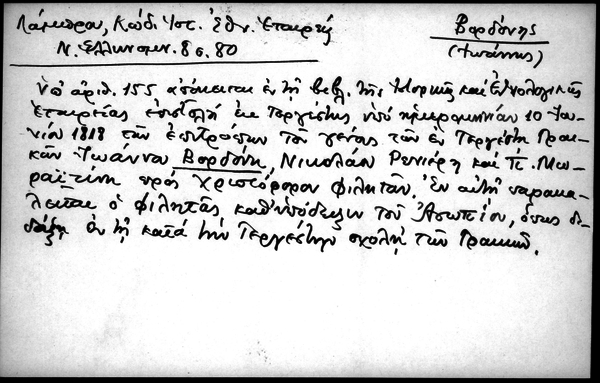 Λάμπρου, Κώδ. Ἱστ. Ἐθν. Ἑταιρείας
Βορδόνης
Ν. Ἑλληνομν. 8ος. 80
(Ἰωάννης)
Ὑπ' ἀριθ. 155 ἀπόκειται ἐν τῇ βιβλ. τῆς Ἱστορικῆς καὶ Ἐθνολογικῆς
Ἑταιρείας ἐπιστολὴ ἐκ Τεργέστης ὑπὸ ἡμερομηνίαν 10 Ἰου-
νίου 1818 τῶν ἐπιτρόπων τοῦ γένους τῶν ἐν Τεργέστῃ Γραι-
κῶν Ἰωάννου Βορδόνη, Νικολάου Ρενιέρη καὶ Π. Μω-
ραϊτίνη πρὸς Χριστόφορον Φιλητᾶν. Ἐν αὐτῇ παρακα-
λεῖται ὁ Φιλητᾶς καθ' ὑπόδειξιν τοῦ Ἀσωπίου, ὅπως δι-
δάξῃ ἐν τῇ κατὰ τὴν Τεργέστην σχολῇ τῶν Γραικῶν.